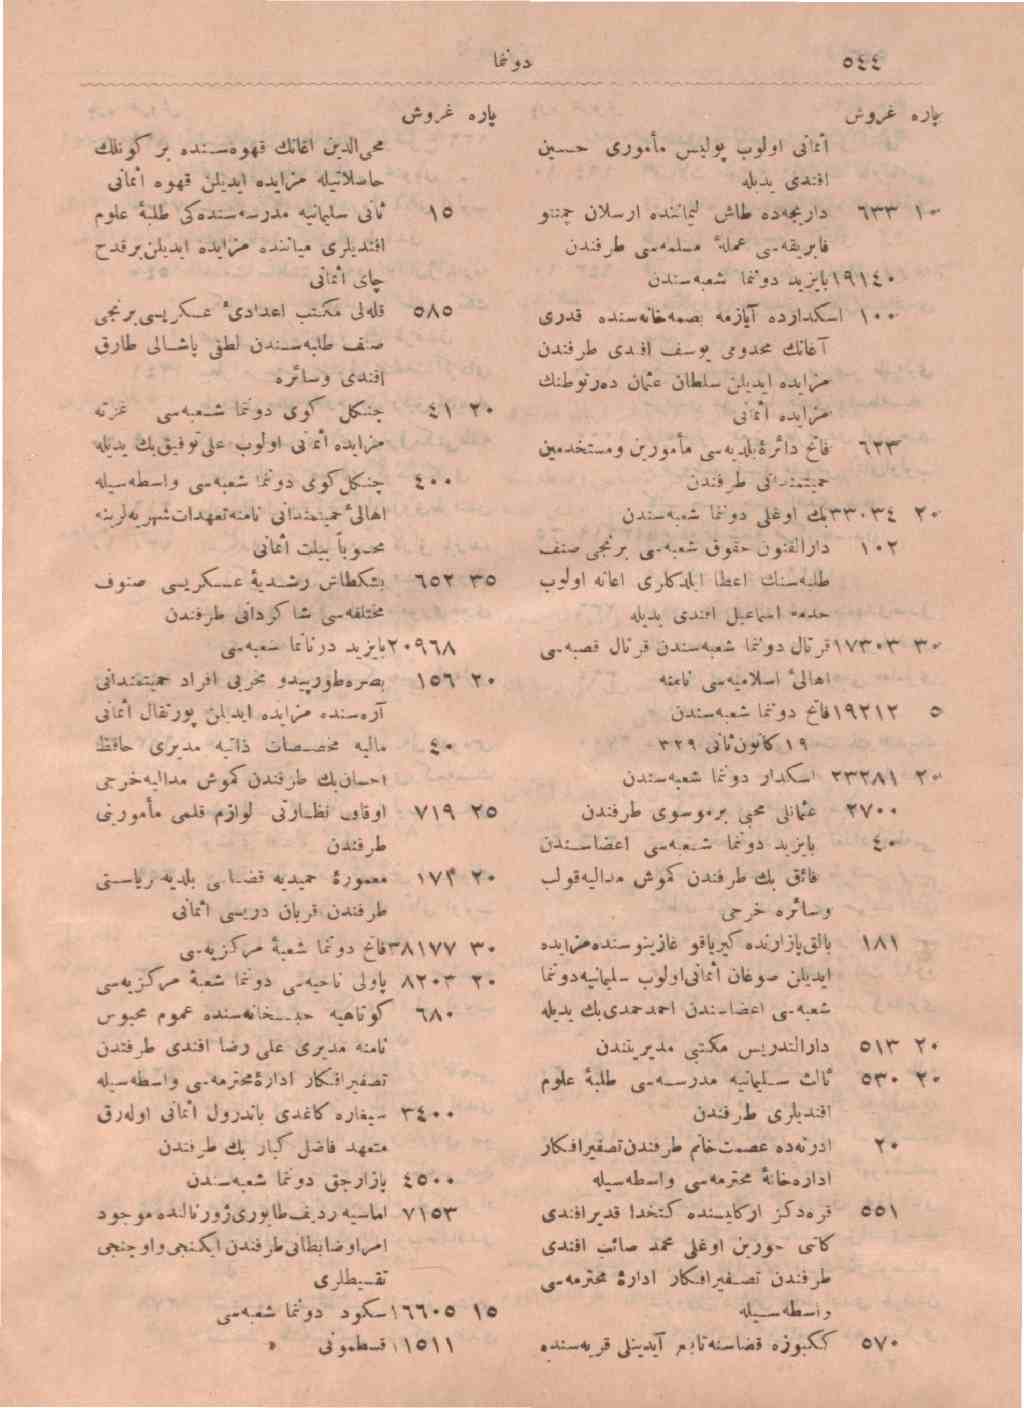 ٥٤٤
دوننما
پاره غروش
أثمانى اولوب پوليس مأمورى حسين
افندى يديله
١٠ ٦٣٣ داريجه‌ده طاش ليماننده ارسلان چمنتو
فابريقه‌سى عمله مسلمه‌سى طرفندن
١٩١٤٠ بايزيد دوننما شعبه‌سندن
١٠٠ اسكدارده آيازمه بصمه‌خانه‌سنده قدرى
آغانك مخدومى يوسف افندى طرفندن
مزايده ايديلن سلطان عثمان دردنوطنك
مزايده أثمانى
٦٢٣ فاتح دائرهٔ بلديه‌سى مأمورين ومستخدمين
حميتمنداتى طرفندن
٢٠ ٣٣٠٣٤ بك اوغلى دوننما شعبه‌سندن
١٠٢ دارالفنون حقوق شعبه‌سى برنجى صنف
طلبه‌سنك اعطا ايلدكلرى اعانه اولوب
اسماعيل افندى يديله
٣٠ ١٧٣٠٣ قرتال دوننما شعبه‌سندن قرتال قصبه‌سى
اهالئ اسلاميه‌سى نامنه
٥ ١٩٢١٢ فاتح دوننما شعبه‌سندن
١٩ كانون‌ثانى ٣٢٩
٢٠ ٢٣٢٨١ اسكدار دوننما شعبه‌سندن
٢٧٠٠ عثمانلى محبى برموسوى طرفندن
٤٠ بايزيد دوننما شعبه‌سى اعضاسندن
فائق بك طرفندن كموش مداليه‌قولب
وسائره خرجى
١٨١ بالق‌پازارنده كيرياقو غازينوسنده مزايده
ايديلن صوغان أثمانى اولوب سليمانيه‌دوننما
شعبه‌سى اعضاسندن احمدحمدى‌بك يديله
٢٠ ٥١٣ دارالتدريس مكتبى مديريتندن
٢٠ ٥٣٠ ثالث سليمانيه مدرسه‌سى طلبهٔ علوم
افنديلرى طرفندن
٢٠ ادرنه‌ده عصمت‌خانم طرفندن‌تصفيرافكار
اداره‌خانهٔ محترمه‌سى واسطه‌سيله
٥٥١ قره‌دكز اركاينده كتخدا قديرافندى
كاتبى اوغلى محمد صائب افندى
طرفندن تصفيرافكار ادارهٔ محترمه‌سى
واسطه‌سيله
٥٧٠ ككبوزه قضاسنه‌تابع آيدينلى قريه‌سنده
پاره غروش
محى‌الدين اغانك قهوه‌سنده بر كونلك
حاصلاتيله مزايده ايديلن قهوه أثمانى
١٥ ثانى سليمانيه مدرسه‌سنده‌كى طلبهٔ علوم
افنديلرى مياننده مزايده ايديلن‌برقدح
چاى أثمانى
٥٨٥ قله‌لى مكتب اعدادئ عسكريسى‌برنجى
صنف طلبه‌سندن لطفى پاشالى طارق
افندى وسائره
٢٠ ٤١ چنكل كوى دوننما شعبه‌سى غزته
مزايده أثمانى اولوب على‌توفيق‌بك يديله
٤٠٠ چنكل‌كوى دوننما شعبه‌سى واسطه‌سيله
اهالئ حميتمندانى نامنه‌تعهدات‌شهريه‌لرينه
محسوباً بيلت أثمانى
٣٥ ٦٥٢ بشكطاش رشديهٔ عسكريسى صنوف
مختلفه‌سى شاكردانى طرفندن
٢٠٩٦٨ بايزيد دوننما شعبه‌سى
٢٠ ١٥٦ بصره‌طورپيدو مخربى افراد حميتمندانى
آره‌سنده مزايده ايديلن پورتقال أثمانى
٤٠ ماليه مخصصات ذاتيه مديرى حافظ
احسان‌بك طرفندن كموش مداليه‌خرجى
٢٥ ٧١٩ اوقاف نظارتى لوازم قلمى مأمورينى
طرفندن
٢٠ ١٧٣ معمورهٔ حميديه قضاسى بلديه رياستى
طرفندن قربان دريسى أثمانى
٣٠ ٣٨١٧٧ فاتح دوننما شعبهٔ مركزيه‌سى
٢٠ ٨٢٠٣ پاولى ناحيه‌سى دوننما شعبهٔ مركزيه‌سى
٦٨٠ كوتاهيه حبسخانه‌سنده عموم محبوس
نامنه مديرى على رضا افندى طرفندن
تصفيرافكار ادارهٔ محترمه‌سى واسطه‌سيله
٣٤٠٠ سيغاره كاغدى باندرول أثمانى اوله‌رق
متعهد فاضل كبار بك طرفندن
٤٥٠٠ پازارجق دوننما شعبه‌سندن
٧١٥٣ اماسيه رديف‌طابورى‌ژورنالنده موجود
امراوضابطانى‌طرفندن ايكنجى‌واوچنجى
تقسيطلرى
١٥ ١٦٦٠٥ سكود دوننما شعبه‌سى
١١٥١١ قسطمونى »